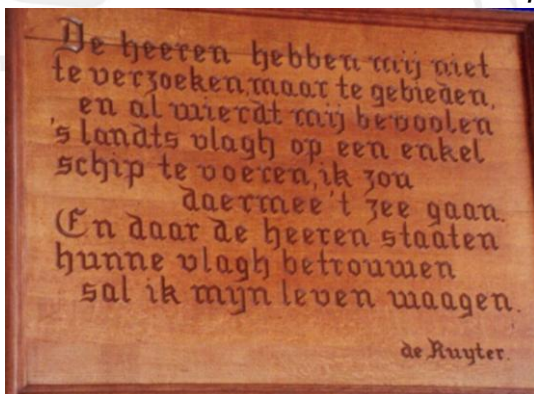 De heeren hebben mij niet
te verzoeken, maar te gebieden,
en al wierdt mij bevoolen
's landts vlagh op een enkel
schip te voeren, ik zou
daermee 't zee gaan.
En daar de heeren staaten
hunne vlagh betrouwen
sal ik myn leven waagen.
de Ruyter.